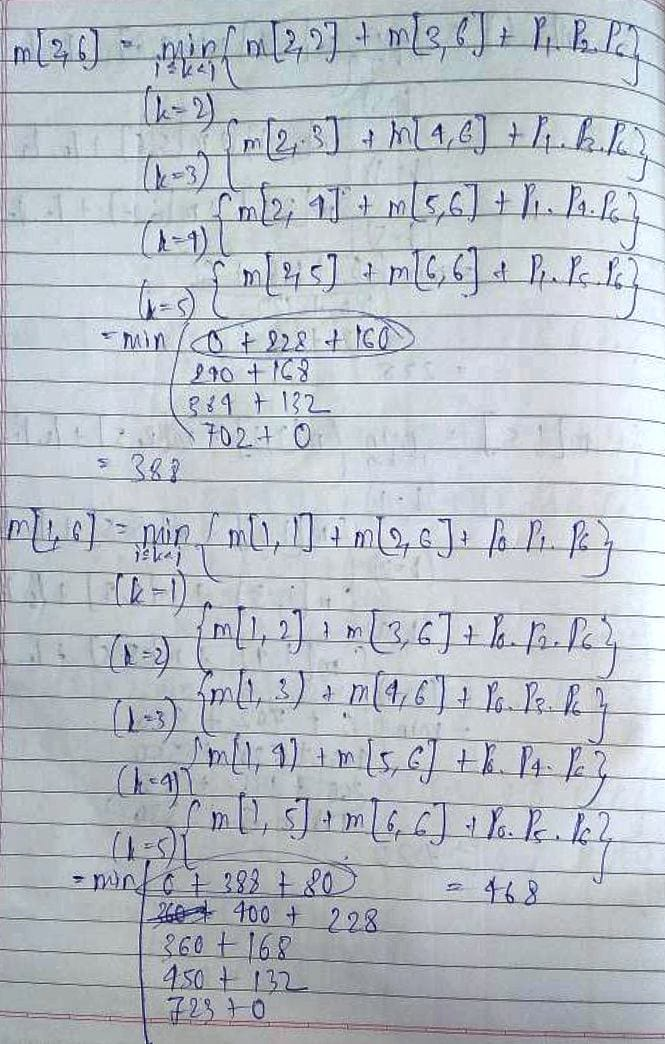 m[2,6] = min { m[2,2] + m[3,6] + P₁. P₂. P₆}
i≤k<j
(k=2)
{m[2,3] + m[4,6] + P₁. P₃. P₆}
(k=3)
{m[2,4] + m[5,6] + P₁. P₄. P₆}
(k=4)
{ m[2,5] + m[6,6] + P₁. P₅. P₆}
(k=5)
= min 0 + 228 + 160
240 + 168
384 + 132
702 + 0
= 388
m[1,6] = min { m[1,1] + m[2,6] + P₀. P₁. P₆}
i≤k<j
(k=1)
{m[1,2] + m[3,6] + P₀. P₂. P₆}
(k=2)
{m[1,3) + m[4,6] + P₀. P₃. P₆}
(k=3)
{m[1,4) + m[5,6] + P₀. P₄. P₆}
(k=4)
{ m[1,5] + m[6,6] + P₀. P₅. P₆}
(k=5)
= min 0 + 388 + 80 = 468
360 + 400 + 228
360 + 168
450 + 132
723 + 0